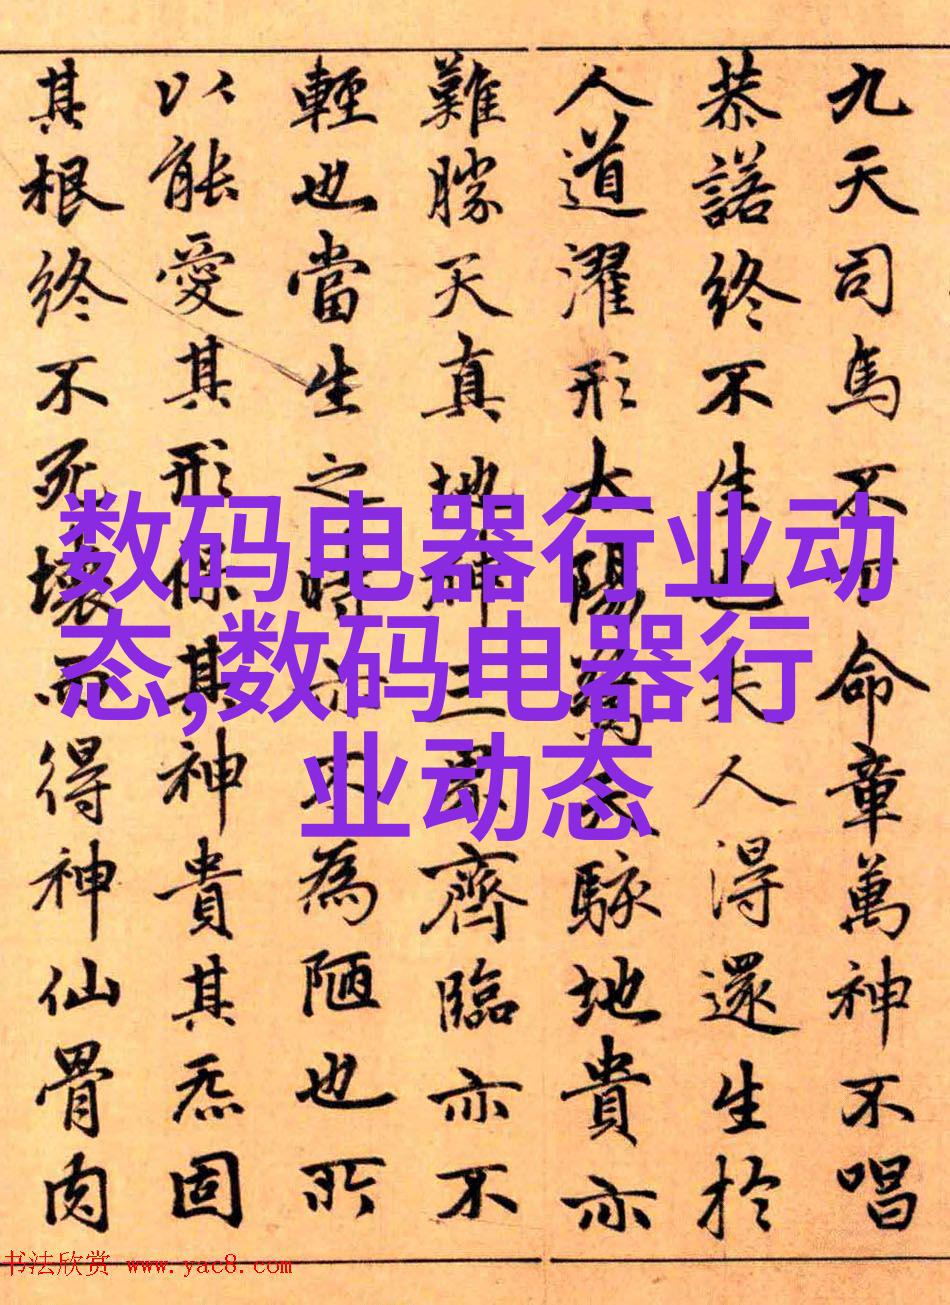 九天司馬不下命章萬神不唱
恭諾終不生也夫人得還生於
人道濯形太陽天駭地貴亦
難勝天真地神三界齊臨亦不
輕也當生之時亦不為陋也所
以能愛其形保其神貴其炁固
其根終不死壞而得神仙骨肉
数码电器行业动
态,数码电器行
业动态
书法欣赏 www.yac8.com